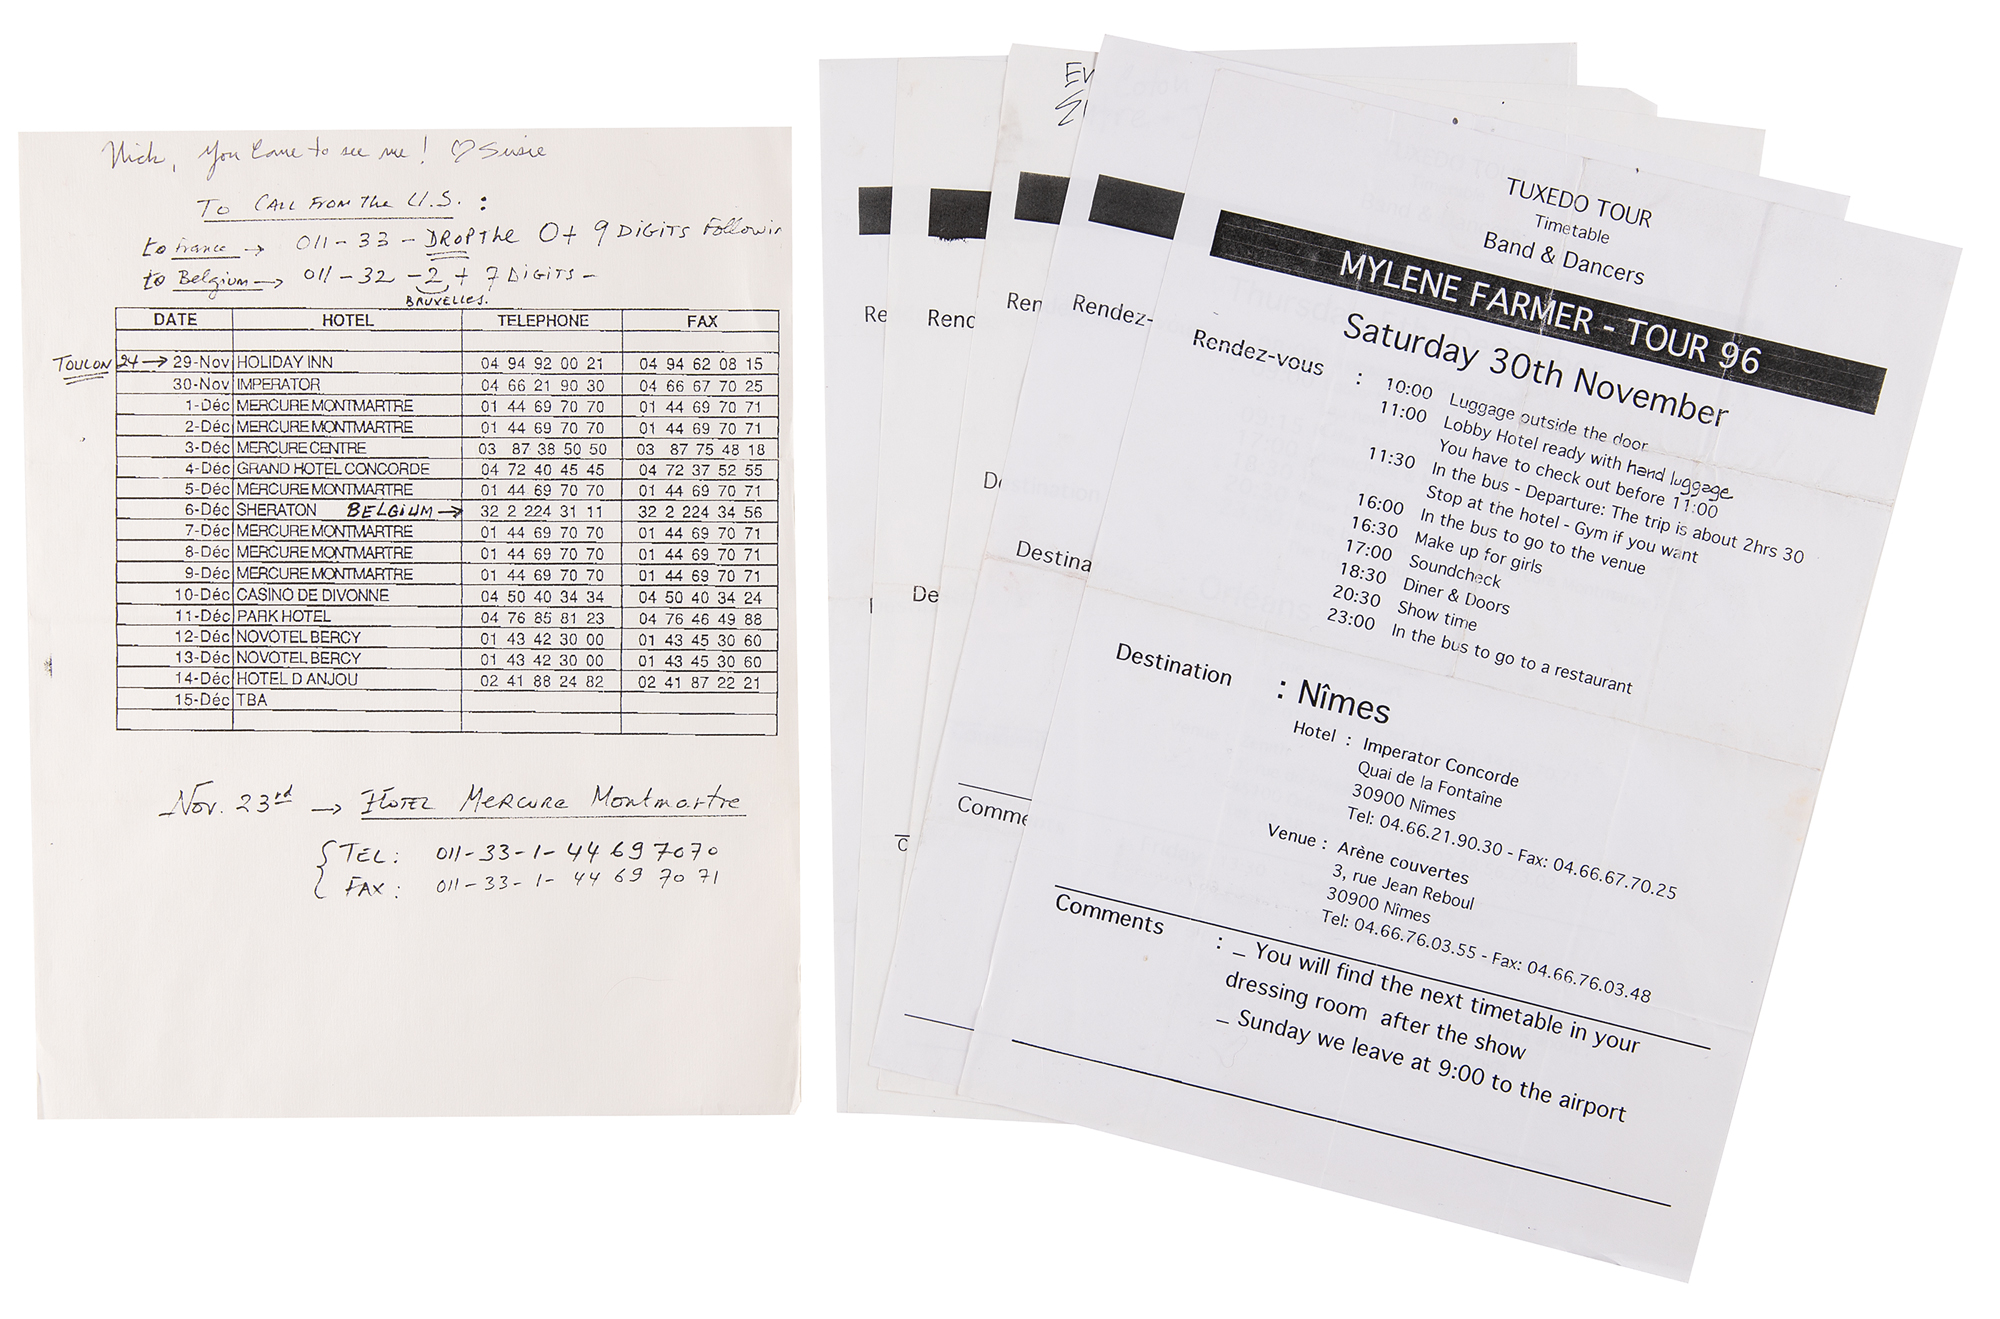 Nick, You Come to see me! ♡ Susie
To CALL FROM the U.S. :
to France → 011-33- DROP the 0 + 9 DIGITS Followin
to Belgium → 011-32-2 + 7 DIGITS -
BRUXELLES.
DATE HOTEL TELEPHONE FAX
TOULON 24 → 29-Nov HOLIDAY INN 04 94 92 00 21 04 94 62 08 15
30-Nov IMPERATOR 04 66 21 90 30 04 66 67 70 25
1-Déc MERCURE MONTMARTRE 01 44 69 70 70 01 44 69 70 71
2-Déc MERCURE MONTMARTRE 01 44 69 70 70 01 44 69 70 71
3-Déc MERCURE CENTRE 03 87 38 50 50 03 87 75 48 18
4-Déc GRAND HOTEL CONCORDE 04 72 40 45 45 04 72 37 52 55
5-Déc MERCURE MONTMARTRE 01 44 69 70 70 01 44 69 70 71
6-Déc SHERATON BELGIUM → 32 2 224 31 11 32 2 224 34 56
7-Déc MERCURE MONTMARTRE 01 44 69 70 70 01 44 69 70 71
8-Déc MERCURE MONTMARTRE 01 44 69 70 70 01 44 69 70 71
9-Déc MERCURE MONTMARTRE 01 44 69 70 70 01 44 69 70 71
10-Déc CASINO DE DIVONNE 04 50 40 34 34 04 50 40 34 24
11-Déc PARK HOTEL 04 76 85 81 23 04 76 46 49 88
12-Déc NOVOTEL BERCY 01 43 42 30 00 01 43 45 30 60
13-Déc NOVOTEL BERCY 01 43 42 30 00 01 43 45 30 60
14-Déc HOTEL D ANJOU 02 41 88 24 82 02 41 87 22 21
15-Déc TBA
Nov. 23rd → HOTEL MERCURE Montmartre
TEL: 011-33-1-44 69 7070
FAX: 011-33-1-44 69 70 71
Re
Renc
De
Ren
D
Destina
Comme
Rendez-
TUXEDO TOUR
Timetable
Band & Dancers
MYLENE FARMER - TOUR 96
Saturday 30th November
Rendez-vous : 10:00 Luggage outside the door
11:00 Lobby Hotel ready with hand luggage
You have to check out before 11:00
11:30 In the bus - Departure: The trip is about 2hrs 30
Stop at the hotel - Gym if you want
16:00 In the bus to go to the venue
16:30 Make up for girls
17:00 Soundcheck
18:30 Diner & Doors
20:30 Show time
23:00 In the bus to go to a restaurant
Destination : Nîmes
Hotel : Imperator Concorde
Quai de la Fontaîne
30900 Nîmes
Tel: 04.66.21.90.30 - Fax: 04.66.67.70.25
Venue : Arène couvertes
3, rue Jean Reboul
30900 Nîmes
Tel: 04.66.76.03.55 - Fax: 04.66.76.03.48
Comments : _ You will find the next timetable in your
dressing room after the show
_ Sunday we leave at 9:00 to the airport